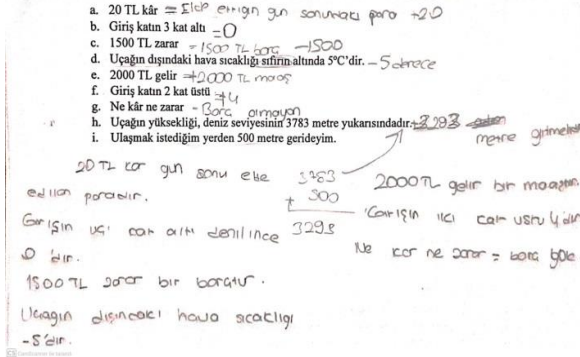 a. 20 TL kâr = Elde ettiğin gün sonundaki para +20
b. Giriş katın 3 kat altı = 0
c. 1500 TL zarar - 1500 TL borç -1500
d. Uçağın dışındaki hava sıcaklığı sıfırın altında 5°C'dir. - 5 derece
e. 2000 TL gelir = +2000 TL maaş
f. Giriş katın 2 kat üstü +4
g. Ne kâr ne zarar - Borç olmayan
h. Uçağın yüksekliği, deniz seviyesinin 3783 metre yukarısındadır. +3293
metre gitmeliyim
i. Ulaşmak istediğim yerden 500 metre gerideyim.
20 TL kar gün sonu elde
edilen paradır.
Girişin üç kat altı denilince
0 'dır.
1500 TL zarar bir borçtur.
Uçağın dışındaki hava sıcaklığı
-5'dir.
+ 500
3293
2000 TL gelir bir maaştır.
Girişin iki kat üstü 4'dür
Ne kar ne zarar = borç